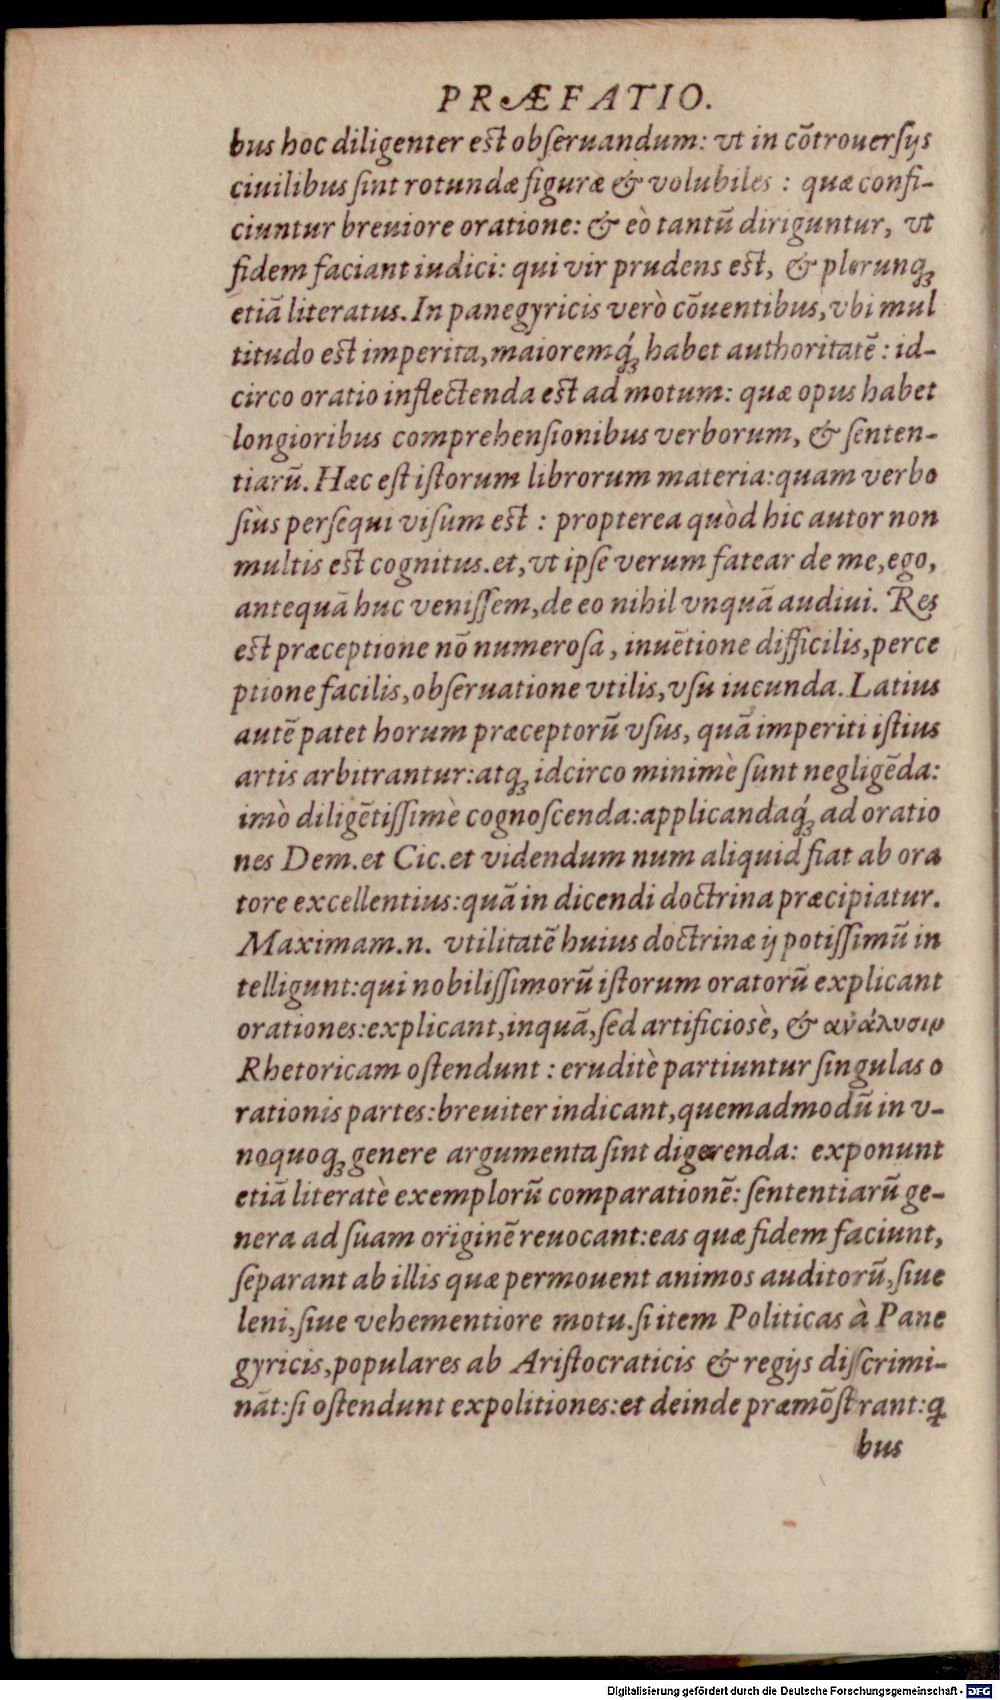 PRÆFATIO.
bus hoc diligenter est obſeruandum: vt in cõtrouerſijs
ciuilibus ſint rotundæ figuræ & volubiles : quæ confi-
ciuntur breuiore oratione: & eò tantũ diriguntur, vt
fidem faciant iudici: qui vir prudens est, & plerunq́ꝫ
etiã literatus. In panegyricis verò cõuentibus, vbi mul
titudo est imperita, maioremq́ꝫ habet authoritatẽ: id-
circo oratio inflectenda est ad motum: quæ opus habet
longioribus comprehenſionibus verborum, & ſenten-
tiarũ. Hæc eſt iſtorum librorum materia: quam verbo
ſiùs perſequi viſum est : propterea quòd hic autor non
multis est cognitus. et, vt ipſe verum fatear de me, ego,
antequã huc veniſſem, de eo nihil vnquã audiui. Res
est præceptione nõ numeroſa, inuẽtione difficilis, perce
ptione facilis, obſeruatione vtilis, vſu iucunda. Latius
autẽ patet horum præceptorũ vſus, quã imperiti iſtius
artis arbitrantur: atqꝫ idcirco minimè ſunt negligẽda:
imò diligẽtiſſimè cognoſcenda: applicandaq́ꝫ ad oratio
nes Dem. et Cic. et videndum num aliquid fiat ab ora
tore excellentius: quã in dicendi doctrina præcipiatur.
Maximam .n. vtilitatẽ huius doctrinæ ij potiſſimũ in
telligunt: qui nobiliſſimorũ iſtorum oratorũ explicant
orationes: explicant, inquã, ſed artificiosè, & ανάλυσιν
Rhetoricam oſtendunt : eruditè partiuntur ſingulas o
rationis partes: breuiter indicant, quemadmodũ in v-
noquoqꝫ genere argumenta ſint digerenda: exponunt
etiã literatè exemplorũ comparationẽ: ſententiarũ ge-
nera ad ſuam originẽ reuocant: eas quæ fidem faciunt,
ſeparant ab illis quæ permouent animos auditorũ, ſiue
leni, ſiue vehementiore motu. ſi item Politicas à Pane
gyricis, populares ab Ariſtocraticis & regijs diſcrimi-
nãt: ſi oſtendunt expolitiones: et deinde præmõſtrant: q
bus
Digitalisierung gefördert durch die Deutsche Forschungsgemeinschaft - DFG